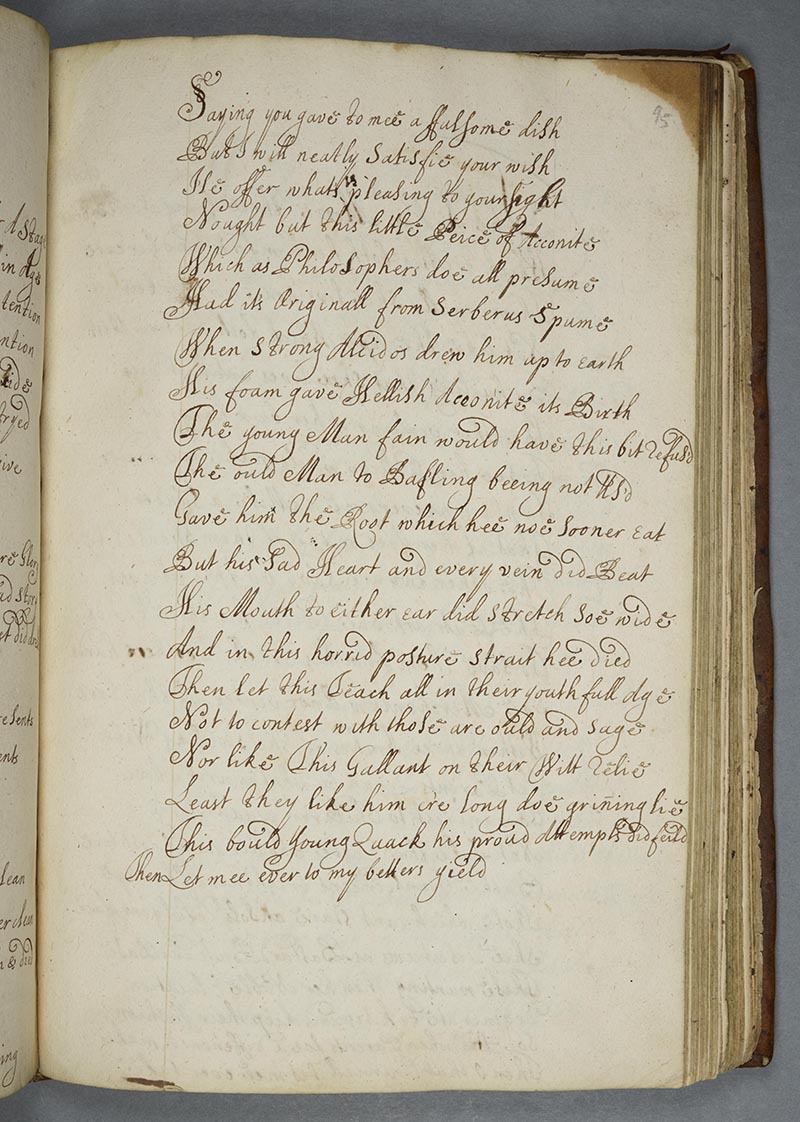 95
Saying you gave to mee a ffulsome dish
But I will neatly Satisfie your wish
Ile offer whats pleasing to your sight
Nought but this little Peice of Acconite
Which as Philosophers doe all presume
Had its Originall from Serberus Spume
When Strong Alcidos drew him up to Earth
His foam gave Hellish Acconite its Birth
The young Man fain would have this bit refus'd
The ould Man to Bafling beeing not us'd
Gave him the Root which hee noe Sooner Eat
But his Sad Heart and every vein did Beat
His Mouth to Either Ear did Stretch Soe wide
And in this horrid posture Strait hee died
Then let this Teach all in their youthfull Age
Not to contest with those are ould and Sage
Nor like This Gallant on their Witt relie
Least they like him e're long doe griñing lie
This bould Young Quack his proud Attempts did feild
Then Let mee ever to my betters yield